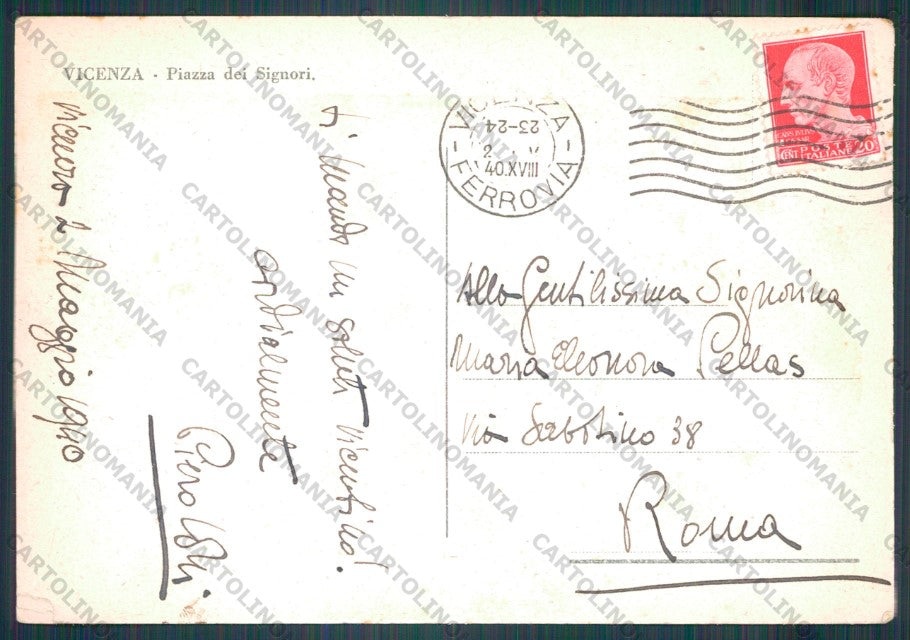 VICENZA - Piazza dei Signori.
Vicenza 2 Maggio 1940
ti mando un saluto vicentino!
cordialmente
Piero
VICENZA
23-24
2 V
40.XVIII
- FERROVIA -
POSTE
CENT. ITALIANE 20
Alla Gentilissima Signorina
Maria Eleonora Pellas
Via Sabotino 38
Roma
CARTOLINOMANIA